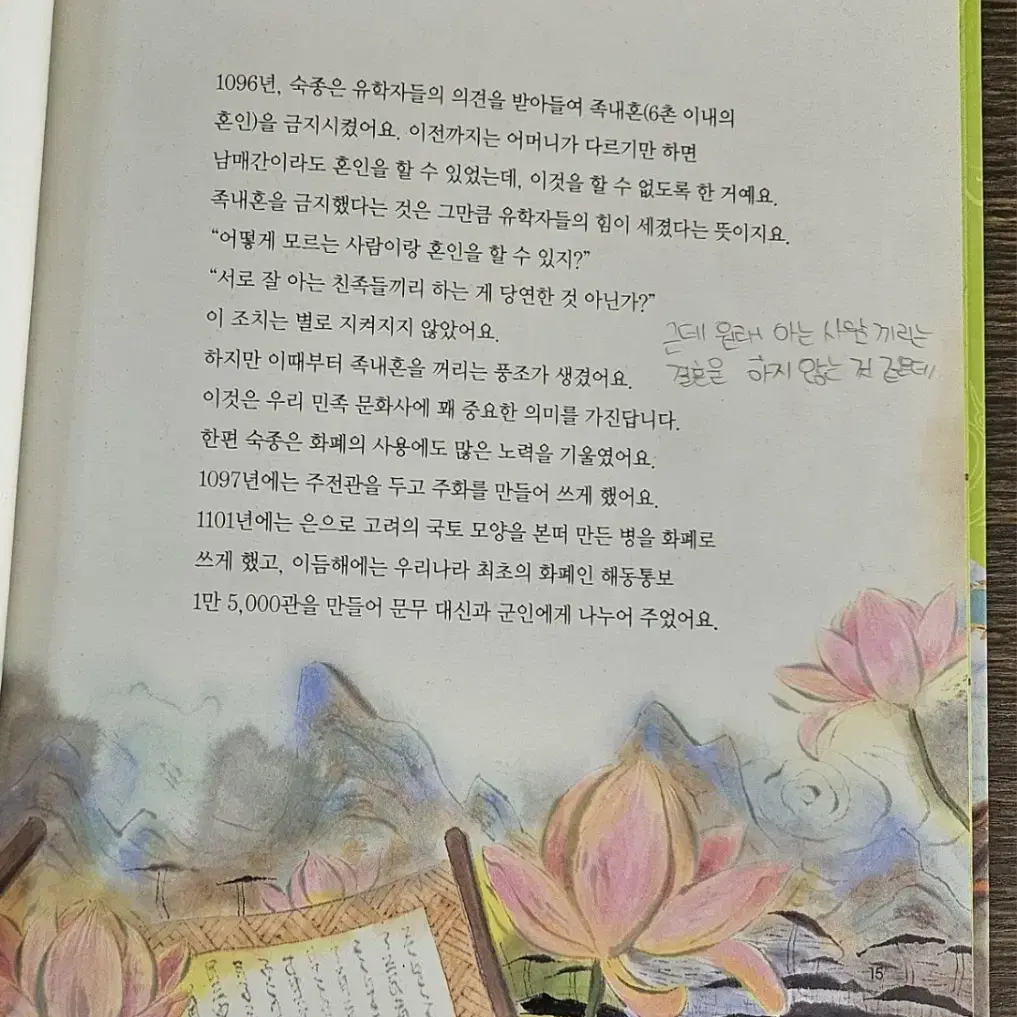 1096년, 숙종은 유학자들의 의견을 받아들여 족내혼(6촌 이내의
혼인)을 금지시켰어요. 이전까지는 어머니가 다르기만 하면
남매간이라도 혼인을 할 수 있었는데, 이것을 할 수 없도록 한 거예요.
족내혼을 금지했다는 것은 그만큼 유학자들의 힘이 세졌다는 뜻이지요.
“어떻게 모르는 사람이랑 혼인을 할 수 있지?”
“서로 잘 아는 친족들끼리 하는 게 당연한 것 아닌가?”
이 조치는 별로 지켜지지 않았어요.
하지만 이때부터 족내혼을 꺼리는 풍조가 생겼어요.
이것은 우리 민족 문화사에 꽤 중요한 의미를 가진답니다.
한편 숙종은 화폐의 사용에도 많은 노력을 기울였어요.
1097년에는 주전관을 두고 주화를 만들어 쓰게 했어요.
1101년에는 은으로 고려의 국토 모양을 본떠 만든 병을 화폐로
쓰게 했고, 이듬해에는 우리나라 최초의 화폐인 해동통보
1만 5,000관을 만들어 문무 대신과 군인에게 나누어 주었어요.
근데 원래 아는 사람 끼리는
결혼을 하지 않는 것 같은데
15